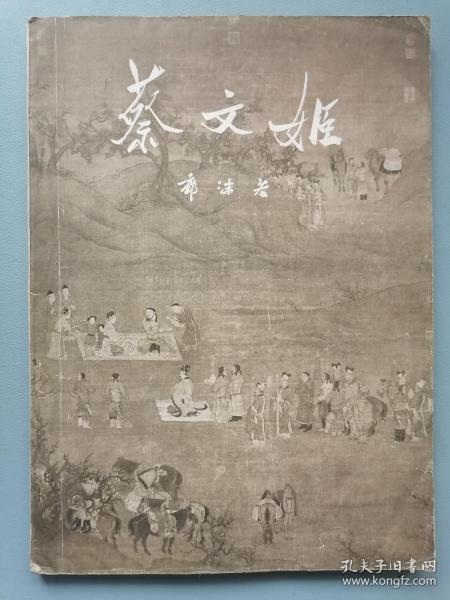 蔡文姬
郭沫若
孔夫子旧书网
www.kongfz.com